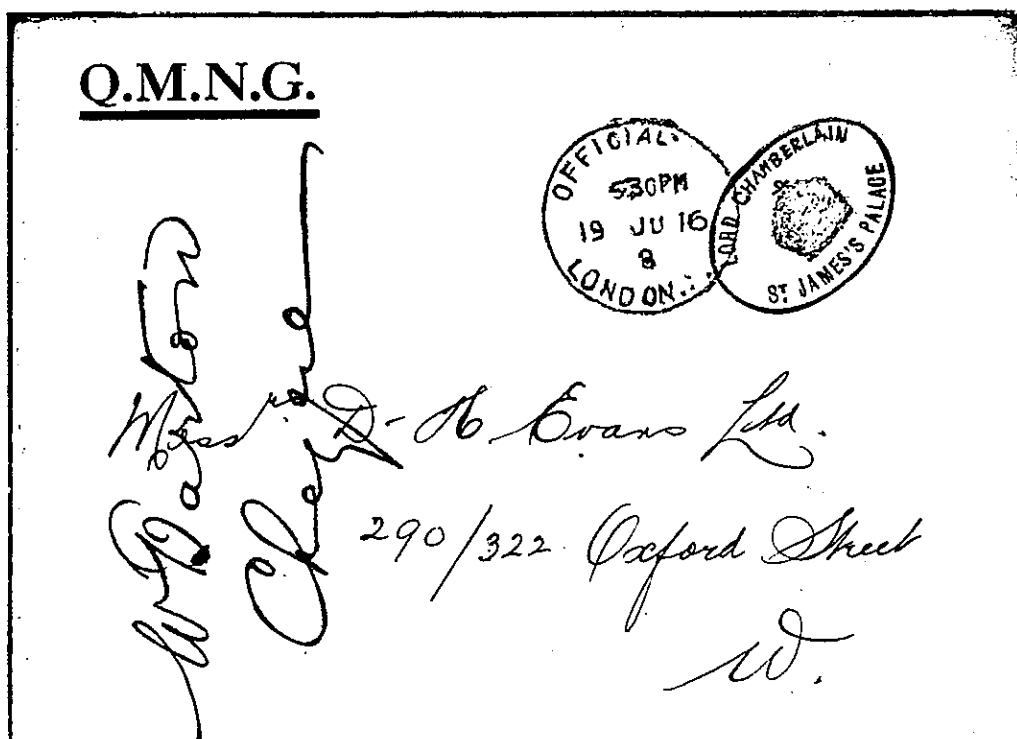 Q.M.N.G.
OFFICIAL.
5.30PM
19 JU 16
8
LONDON.
LORD CHAMBERLAIN
ST JAMES'S PALACE
Messrs D. H. Evans Ltd.
290/322 Oxford Street
W.